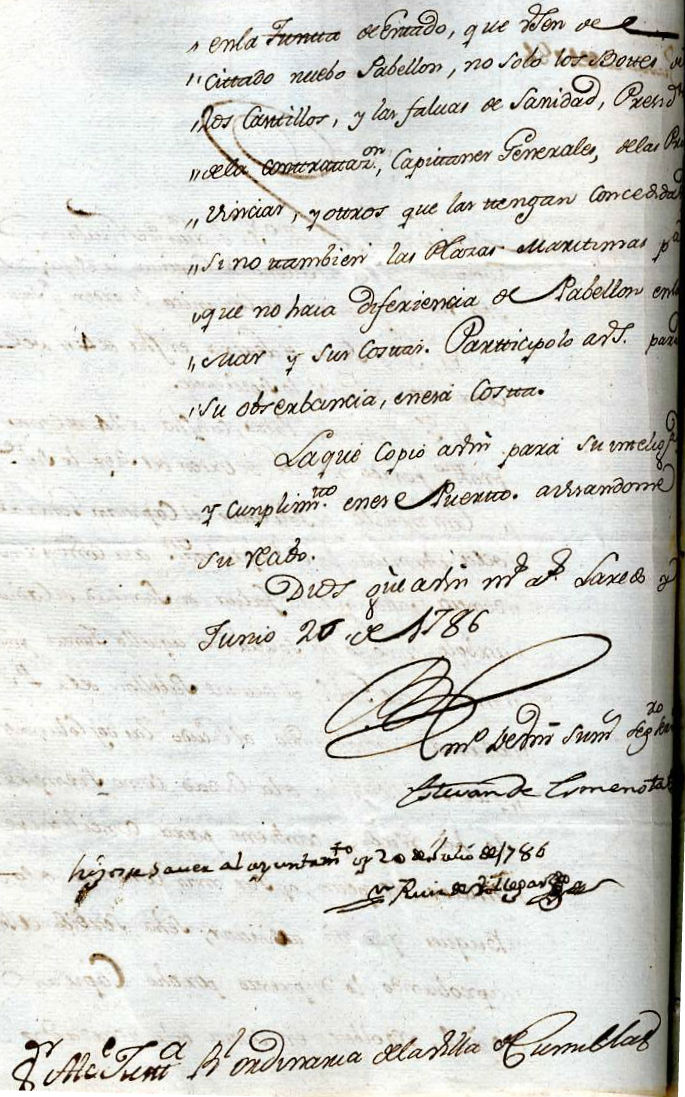 "enla Juntta de Esttado, que usen de
"cittado nuebo Pabellon, no solo los Botes de
"los Casttillos, y las faluas de Sanidad, Presid.
"dela Conttrattaz.on, Capittanes Generales, delas Pro
"vincias, y ottros que las ttengan Concedidas
"si no ttambien las Plazas Marittimas pa
"que no haia diferiencia de Pabellon enla
"mar y sus Costtas. Partticipolo a VS. para
"su obserbancia, en esa Costta.
La que Copio a Vm para su intelig.a
y Cunplim.tto en ese Puertto. avisandome
su recibo.
Dios gue a Vm m.s a.s Laredo y
Junio 26 de 1786
m.o de Vm su m.r seg.ro
Estevan de
hizose saver al ayuntam.to oy 20 de Julio de 1786
Ruiz de Villegas
S.r Alc.e Justt.a R.l ordinaria dela villa de Cumillas